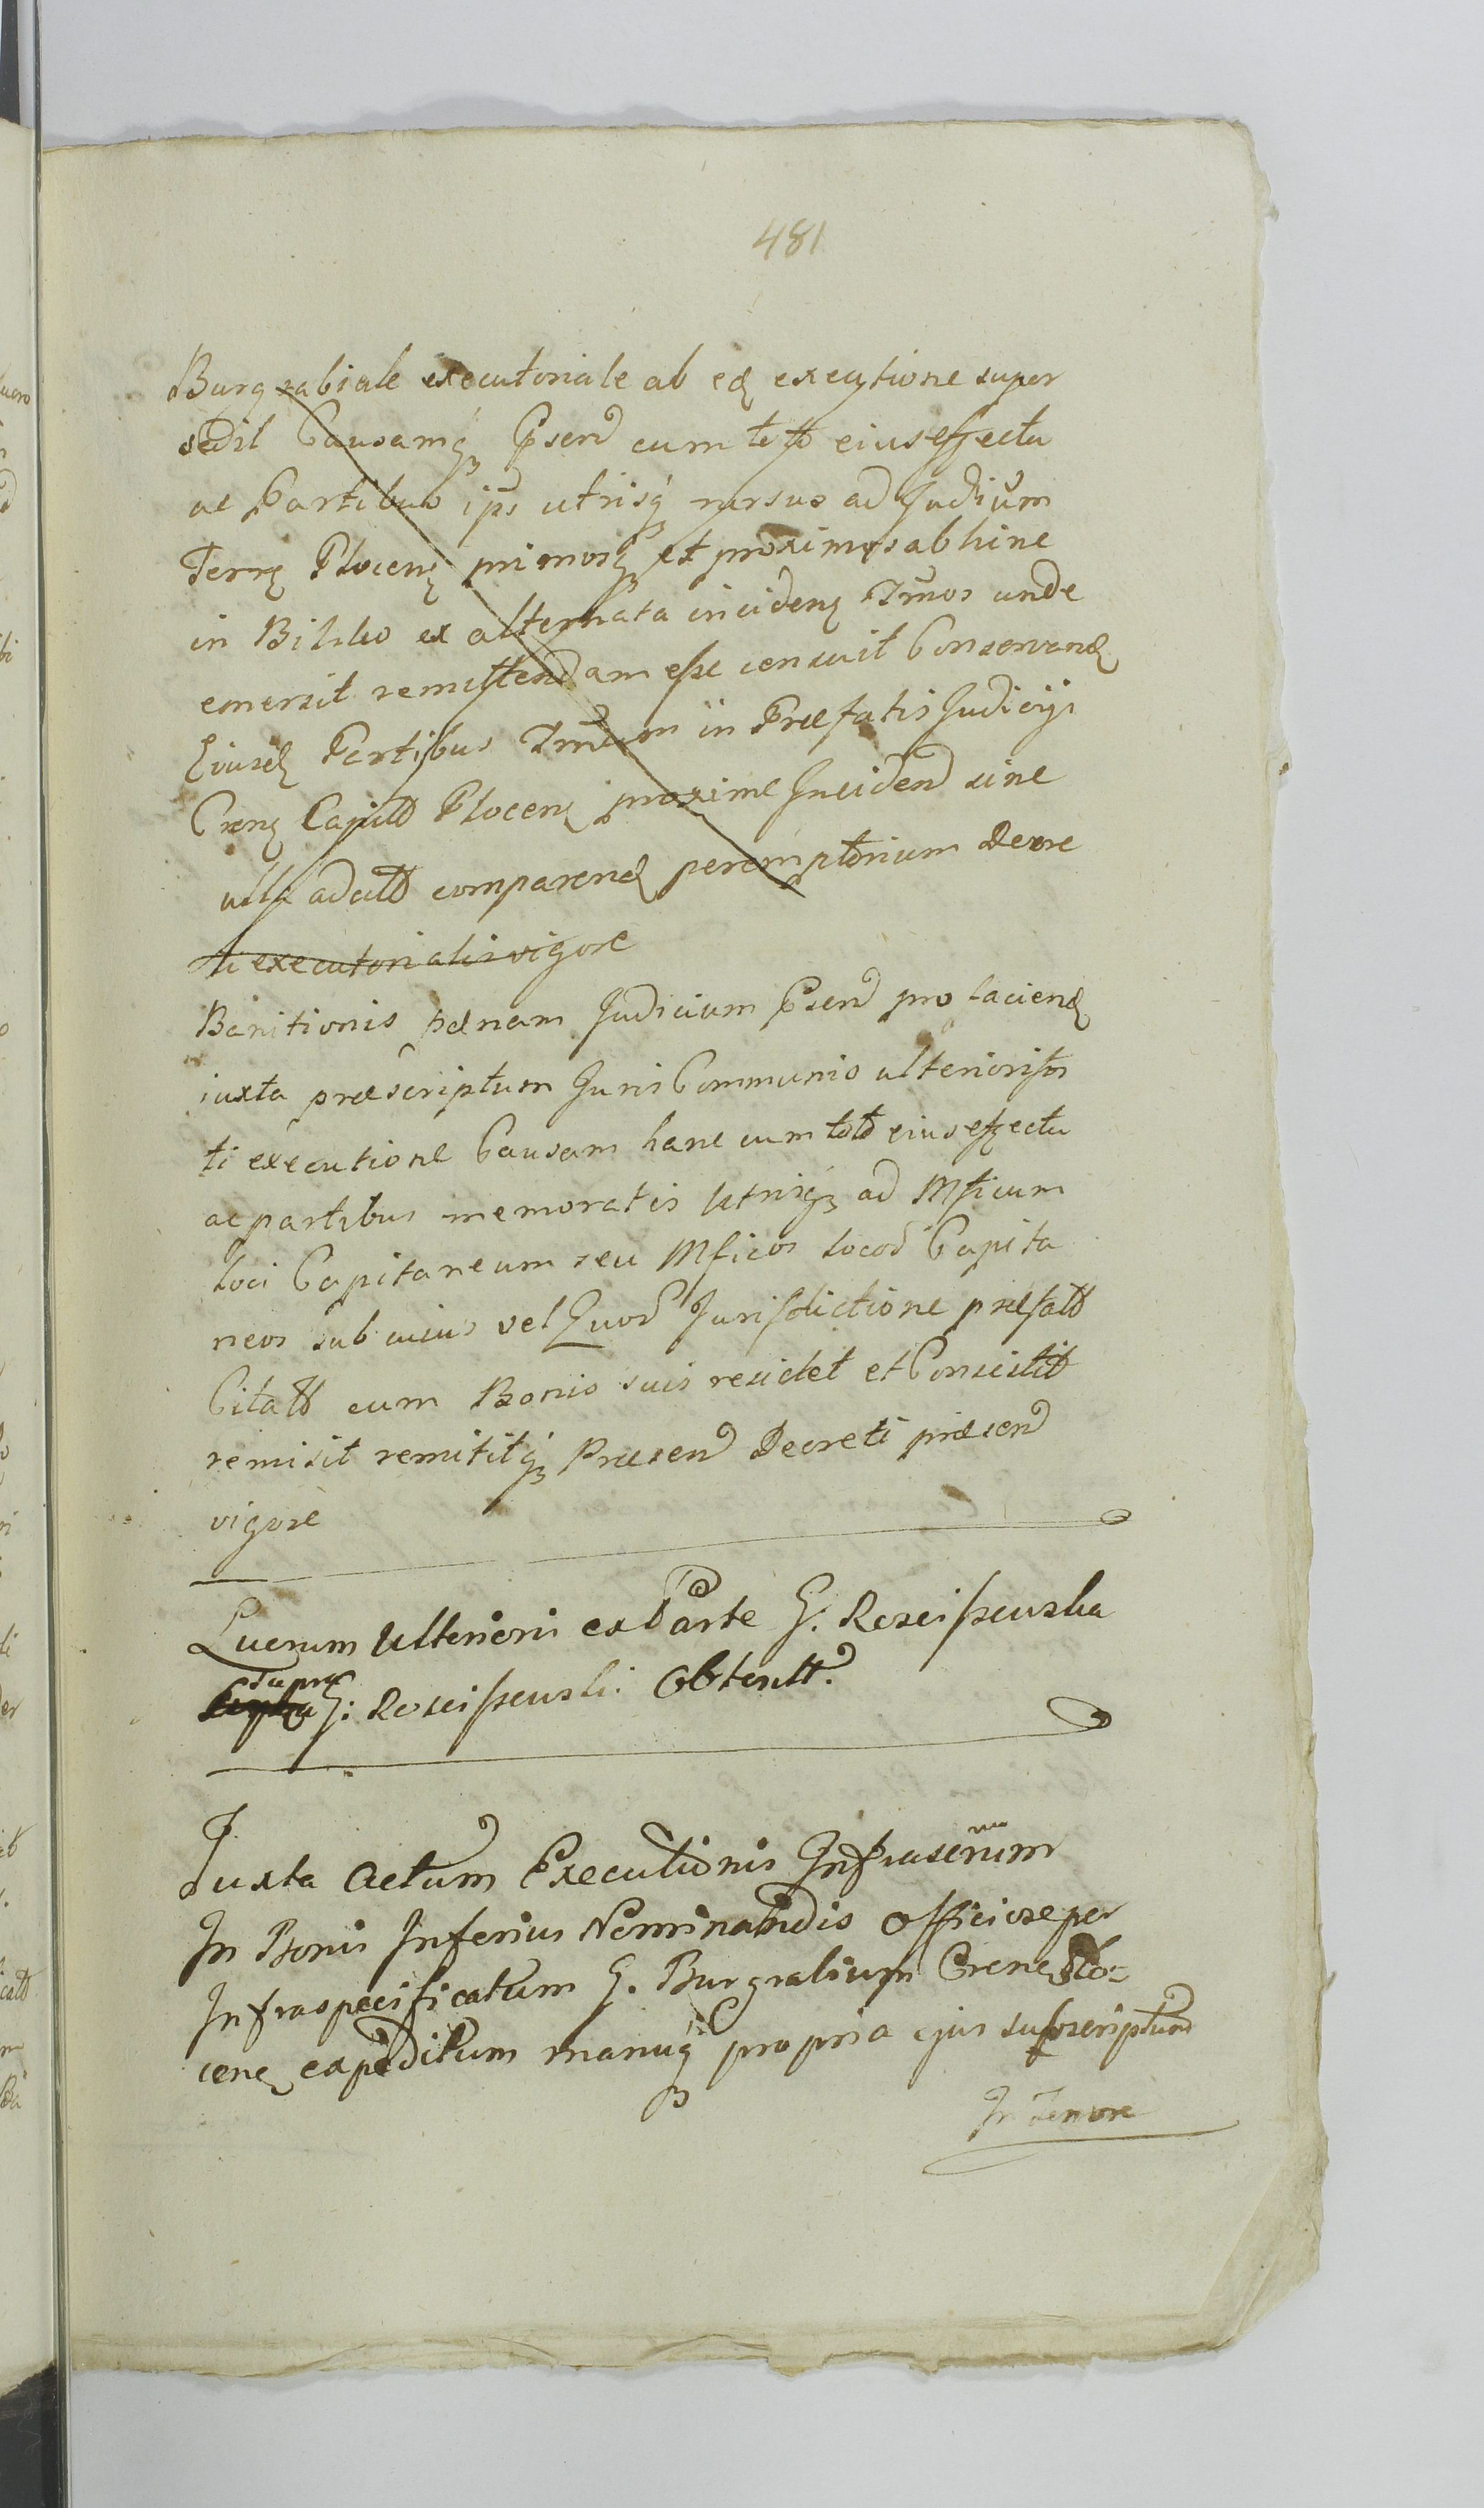 481
Burgrabiale executoriale ab eą executione super
sedit Causamq̷ Psend cum toto eius effectu
ac Partibus ips utrisq̷ rursus ad Judium
Terrę Plocenę primosq̷ et proximos abhinc
in Bilsko ex alternata incidenę Tmos unde
emersit remittendam esse censuit Conservandę
Eiusdę Partibus Tmum in Præfatis Judicijs
Crenę Capitt Plocenę proxime Incidend sine
ulla adcitt comparendę peremptorium Decre
ti executorialis vigore
Banitionis pænam Judicium Psend pro faciendę
iuxta præscriptum Juris Communis ulteriori
ti executione Causam hanc cum toto eius effectu
ac partibus memoratis utrisq̷ ad Mficum
loci Capitaneum seu Mficos locod Capita
neos sub cuius vel Quod Jurisdictione præfatt
Citatt cum Bonis suis residet et Consistit
remisit remititq̷ Præsend Decreti præsend
vigore
Lucrum Ulterioris ex Parte G. Rościszewska
supra G: Rościszewski Obtentt.
Juxta Actum Executionis Infrascrium
In Bonis Inferius Nominandis Officiose per
Infraspecificatum G. Burgrabium Crenę Plo=
cenę expeditum manuq̷ propria ejus subscriptum
In Tenore